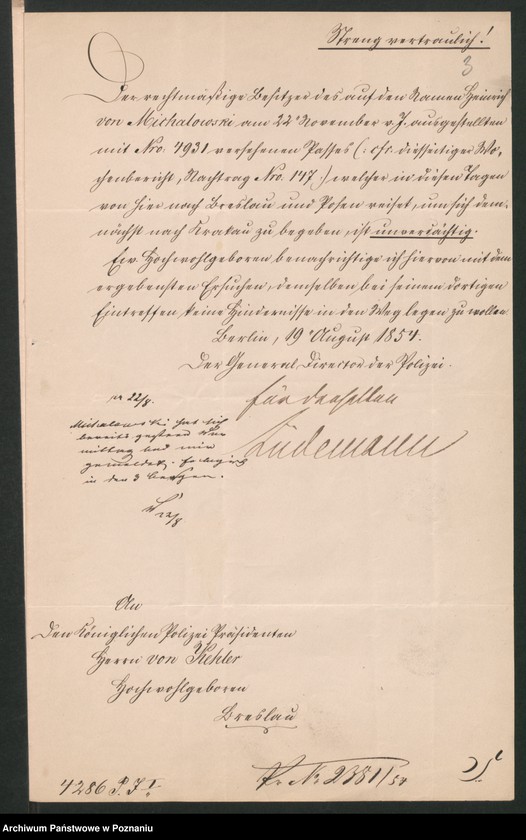 Streng vertraulich!
3
Der rechtmäßige Besitzer des auf den Namen Heinrich
von Michalowski am 22t November v. J. ausgestellten
mit Nro: 4931 versehenen Passes (: cfr. diesseitiger Wo-
chenbericht, Nachtrag Nro. 147.) welcher in diesen Tagen
von hier nach Breslau und Posen reiset, um sich dem-
nächst nach Krakau zu begeben, ist unverdächtig.
Ew. Hochwohlgeboren benachrichtige ich hiervon mit dem
ergebensten Ersuchen, demselben bei seinem dortigen
Eintreffen, keine Hindernisse in den Weg legen zu wollen.
Berlin, 19 August 1854.
Der General-Director der Polizei.
für denselben
Lüdemann
pr 22/8.
Michalowski hat sich
bereits gestern Vor-
mittag bei mir
gemeldet.
in den 3 Bergen.
22/8
An
den Königlichen Polizei Präsidenten
Herrn von Kehler
Hochwohlgeboren
Breslau
4286 P. J. I.
Pr. № 2381/54
Archiwum Państwowe w Poznaniu